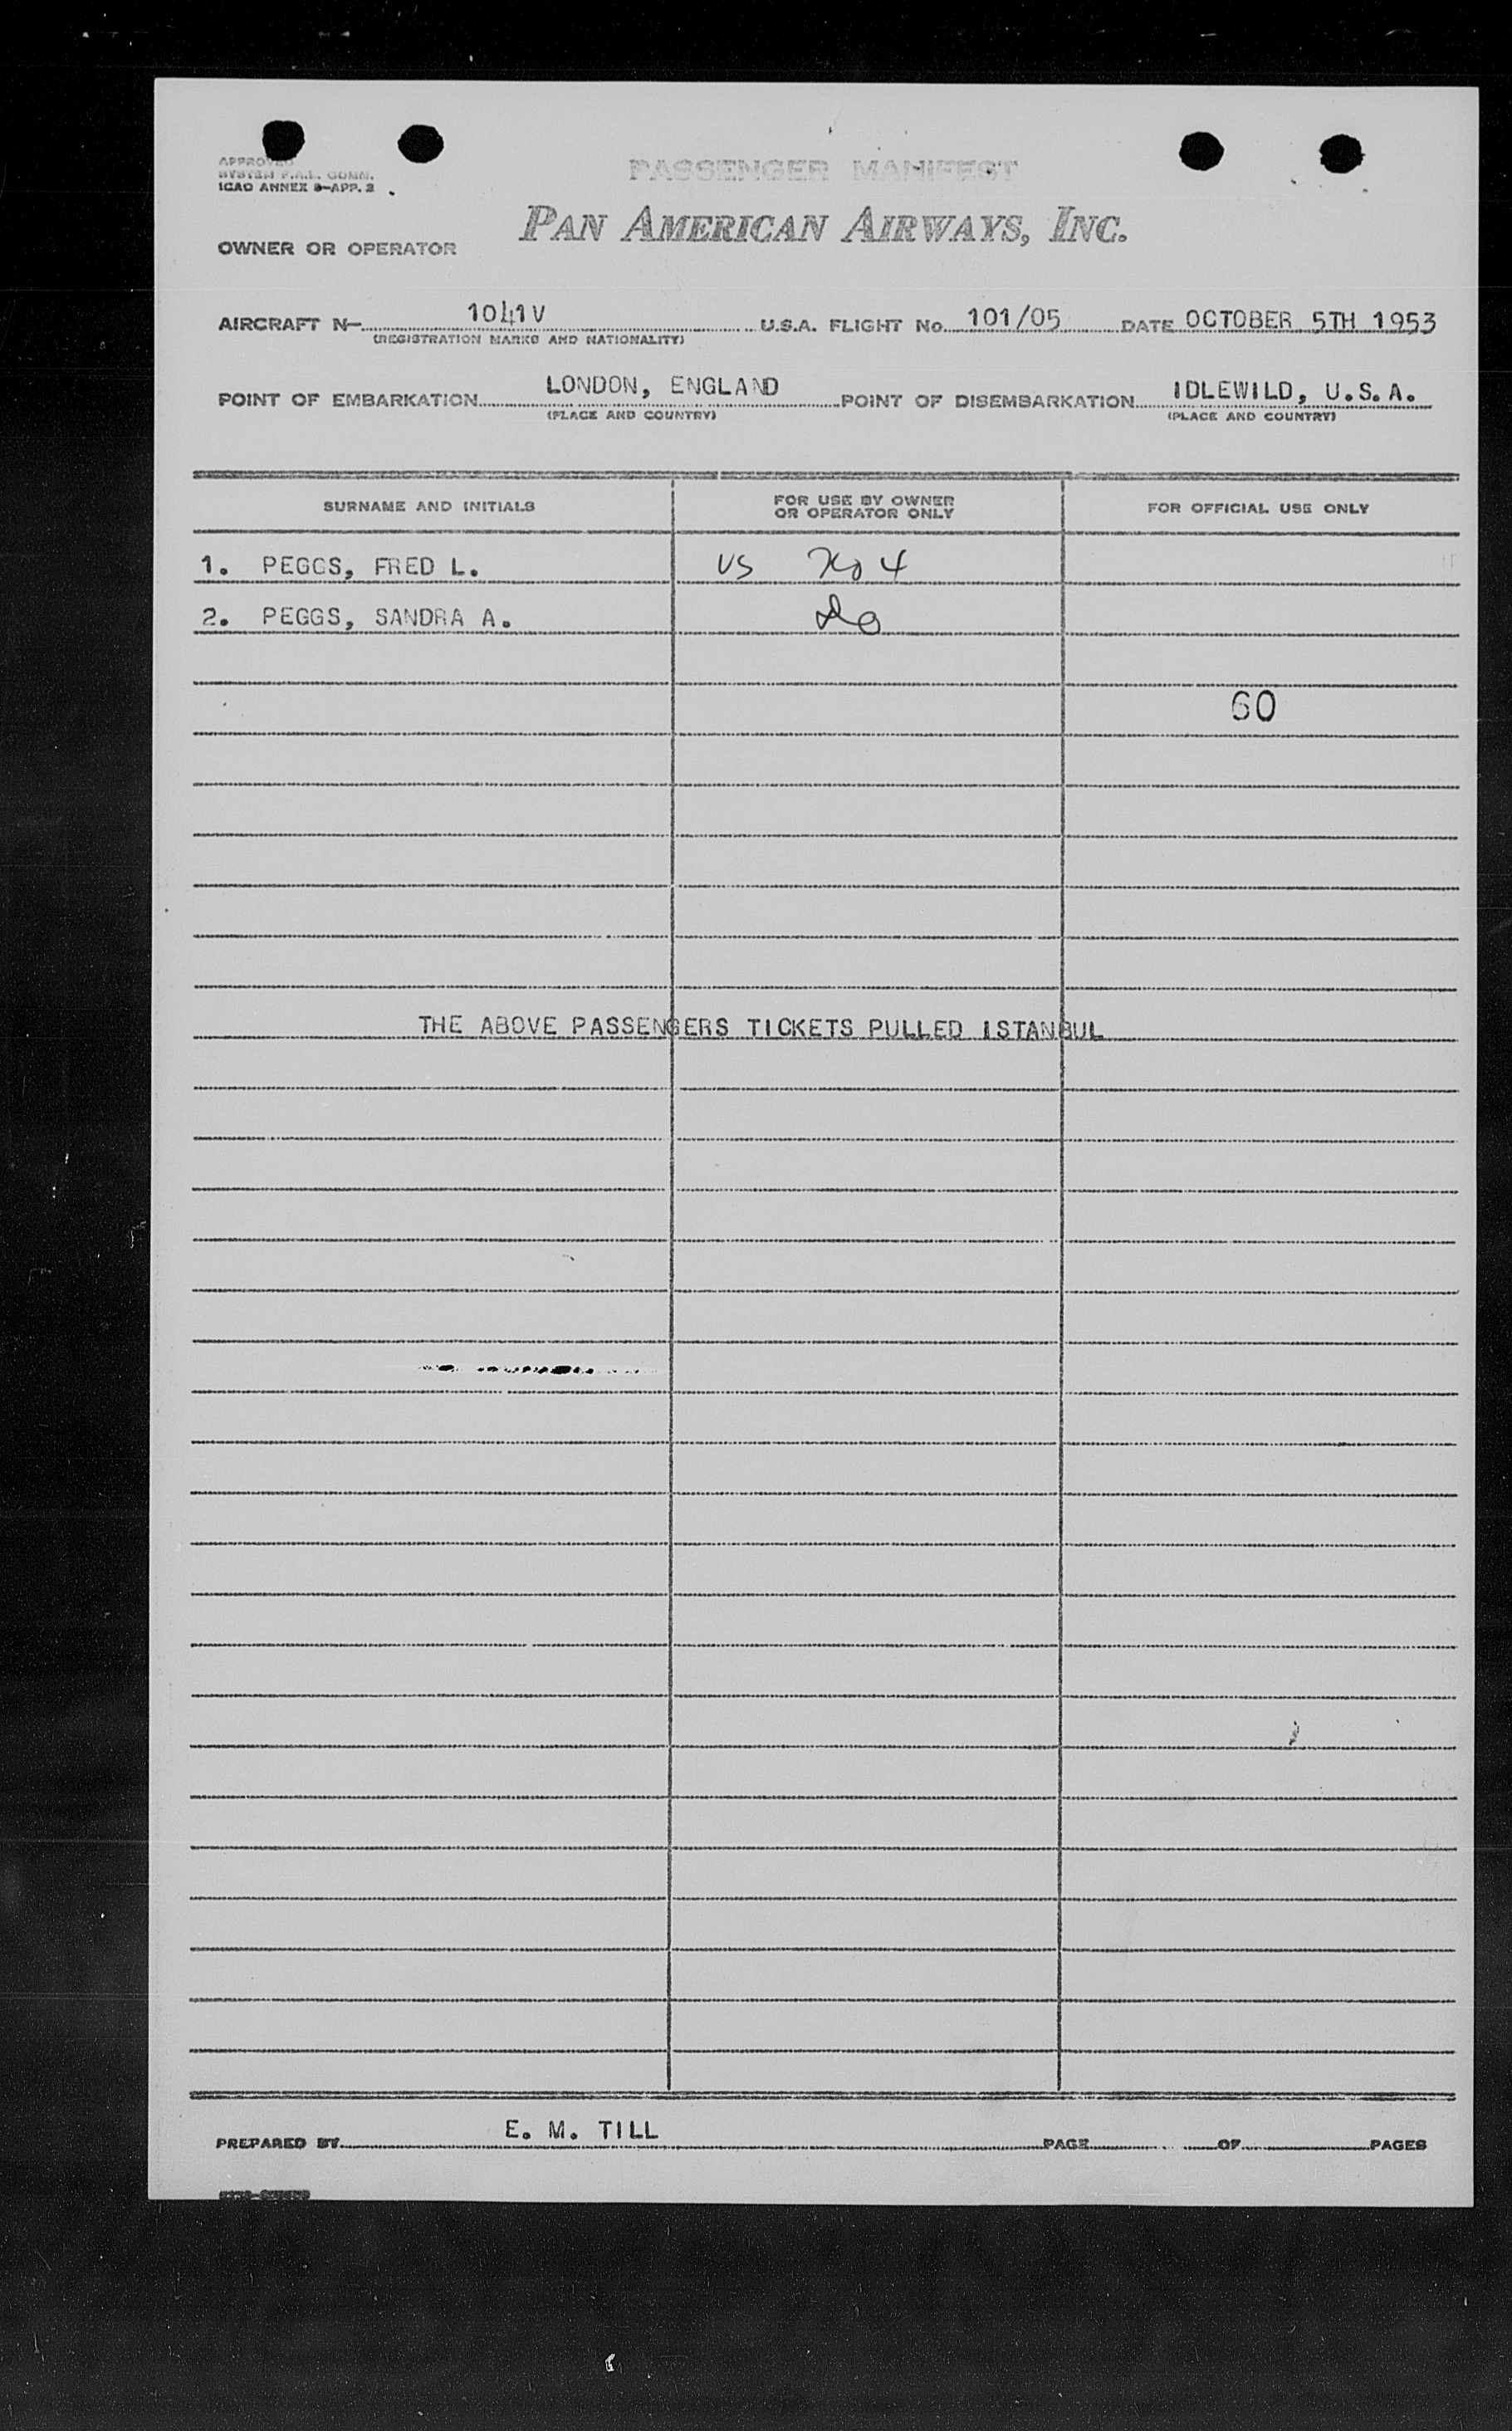 APPROVED
SYSTEM F.A.L. COMM.
ICAO ANNEX 9-APP. 2
PASSENGER MANIFEST
PAN AMERICAN AIRWAYS, INC.
OWNER OR OPERATOR
AIRCRAFT N- 1041V U.S.A. FLIGHT No. 101/05 DATE OCTOBER 5TH 1953
(REGISTRATION MARKS AND NATIONALITY)
POINT OF EMBARKATION LONDON, ENGLAND POINT OF DISEMBARKATION IDLEWILD, U.S.A.
(PLACE AND COUNTRY) (PLACE AND COUNTRY)
SURNAME AND INITIALS FOR USE BY OWNER OR OPERATOR ONLY FOR OFFICIAL USE ONLY
1. PEGGS, FRED L. US
2. PEGGS, SANDRA A. Do
60
THE ABOVE PASSENGERS TICKETS PULLED ISTANBUL
PREPARED BY E. M. TILL PAGE OF PAGES